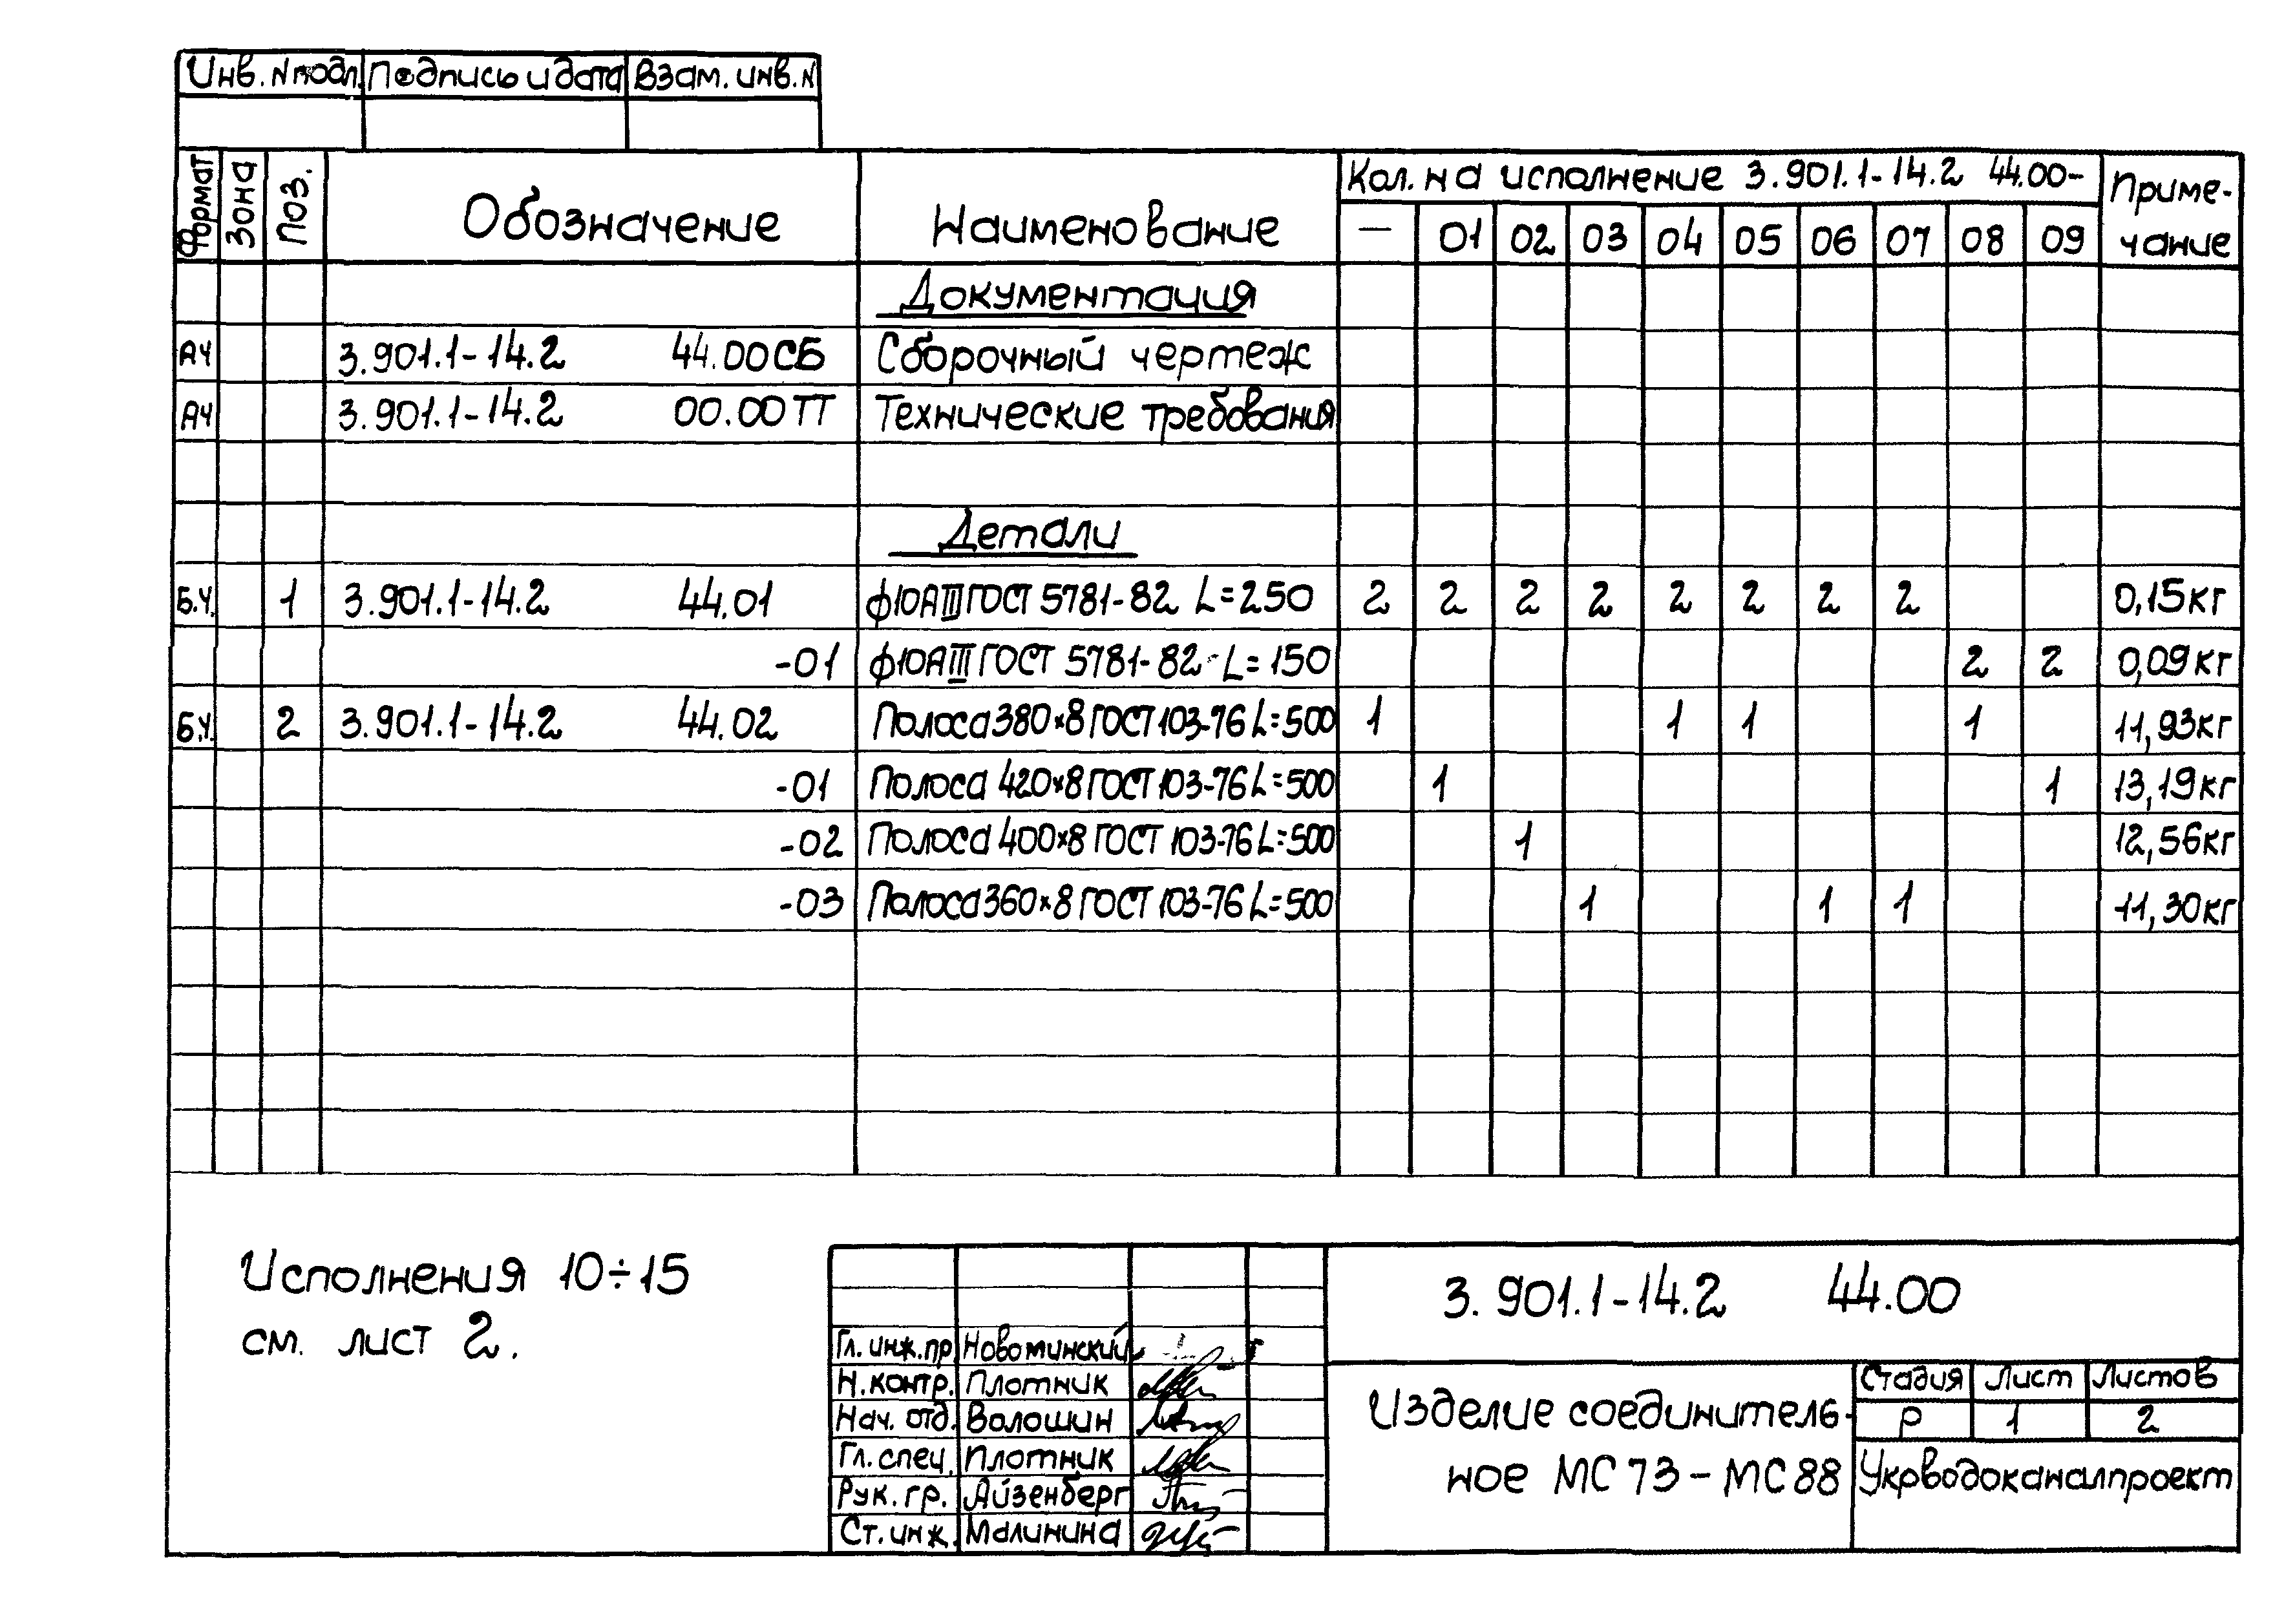 Инв. N подл. Подпись и дата Взам. инв. N
Формат Зона Поз. Обозначение Наименование Кол. на исполнение 3.901.1-14.2 44.00- Приме-
чание
— 01 02 03 04 05 06 07 08 09
Документация
А4 3.901.1-14.2 44.00СБ Сборочный чертеж
А4 3.901.1-14.2 00.00ТТ Технические требования
Детали
Б.Ч. 1 3.901.1-14.2 44.01 ф10АIII ГОСТ 5781-82 L=250 2 2 2 2 2 2 2 2 0,15кг
-01 ф10АIII ГОСТ 5781-82 L=150 2 2 0,09кг
Б.Ч. 2 3.901.1-14.2 44.02 Полоса 380×8 ГОСТ 103-76 L=500 1 1 1 1 11,93кг
-01 Полоса 420×8 ГОСТ 103-76 L=500 1 1 13,19кг
-02 Полоса 400×8 ГОСТ 103-76 L=500 1 12,56кг
-03 Полоса 360×8 ГОСТ 103-76 L=500 1 1 1 11,30кг
Исполнения 10÷15
см. лист 2.
3.901.1-14.2 44.00
Гл. инж. пр. Новоминский
Н. контр. Плотник
Нач. отд. Волошин
Гл. спец. Плотник
Рук. гр. Айзенберг
Ст. инж. Малинина
Изделие соединитель-
ное МС 73 - МС 88
Стадия Лист Листов
Р 1 2
Укрводоканалпроект